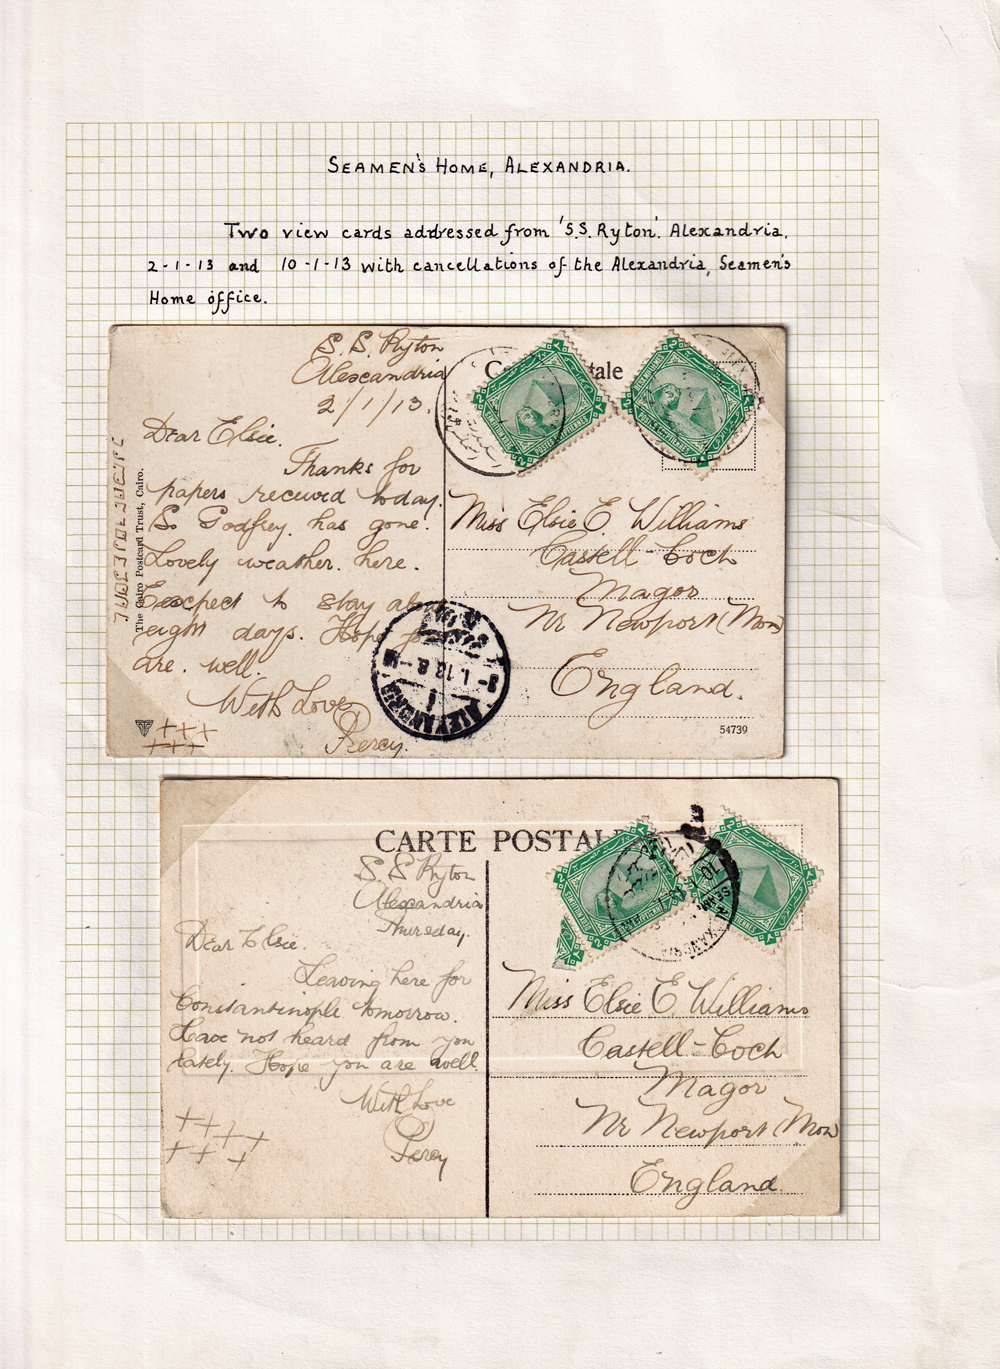 SEAMEN'S HOME, ALEXANDRIA.
Two view cards addressed from 'S.S. Ryton'. Alexandria.
2-1-13 and 10-1-13 with cancellations of the Alexandria, Seamen's
Home office.
S. S. Ryton
Alexandria
2/1/13.
Dear Elsie.
Thanks for
papers received today.
So Godfrey. has gone.
Lovely weather. here.
Eexcpect to stay
eight days. Hope
are. well.
With Love
Percy.
+++
+++
The Cairo Postcard Trust, Cairo.
tale
Miss Elsie E. Williams
Castell-Coch
Magor
Nr Newport (Mon)
England.
54739
ALEXANDRIA
CARTE POSTAL
S. S Ryton
Alexandria
Thursday.
Dear Elsie.
Leaving here for
Constantinople tomorrow.
Have not heard from you
lately. Hope you are well.
With Love
Percy
++
+++
+++
Miss Elsie E. Williams
Castell-Coch
Magor
Nr Newport (Mon)
England.